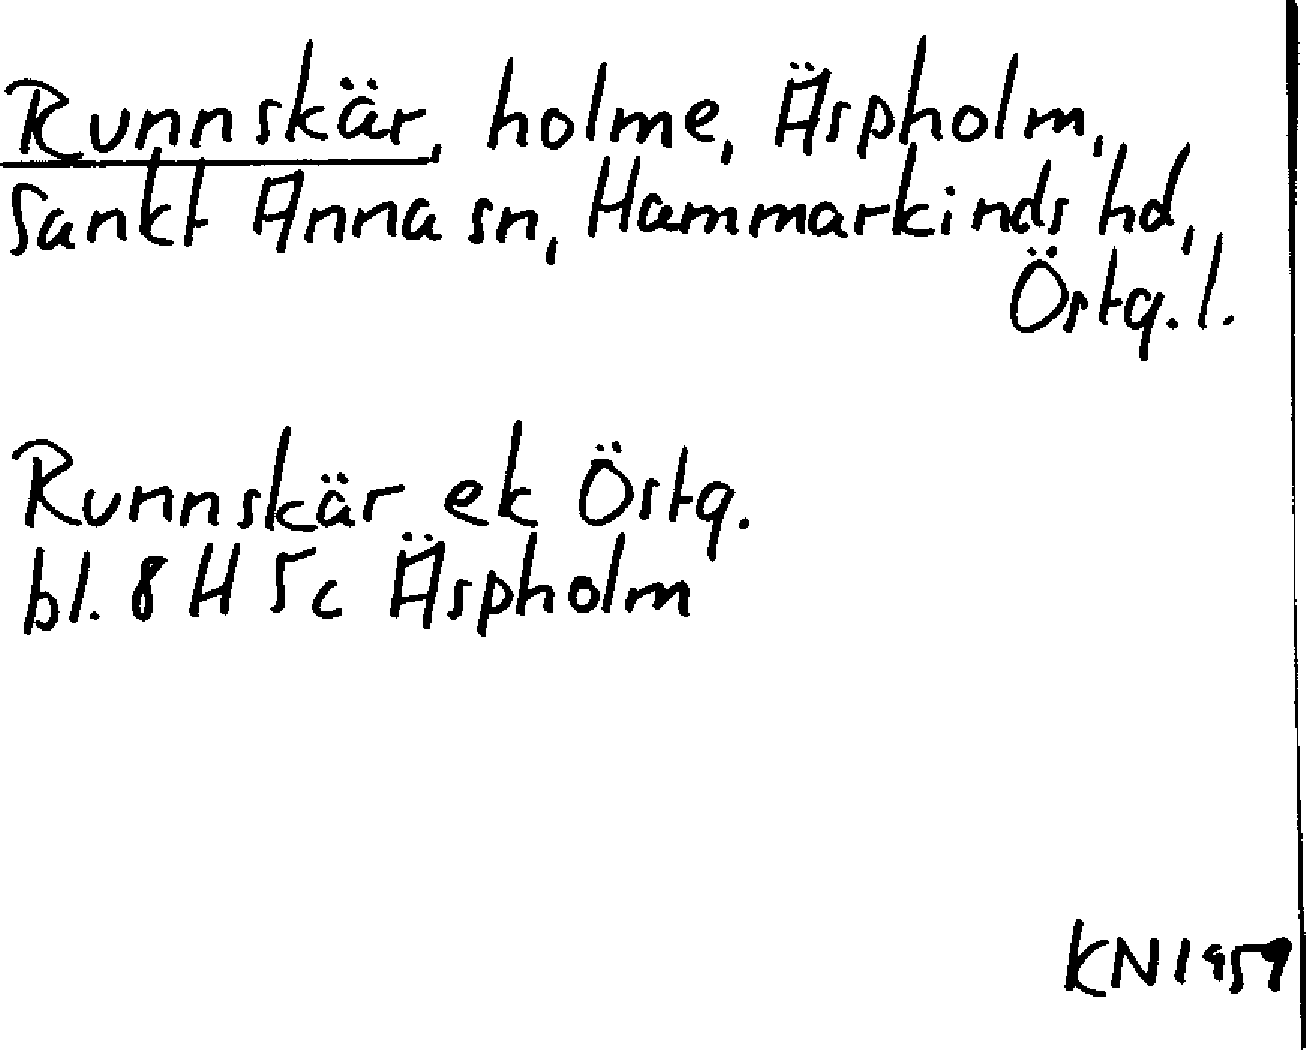 Runnskär, holme, Äspholm,
Sankt Anna sn, Hammarkinds hd,
Östg. l.
Runnskär ek Östg.
bl. 8 H 5c Äspholm
KN 1959